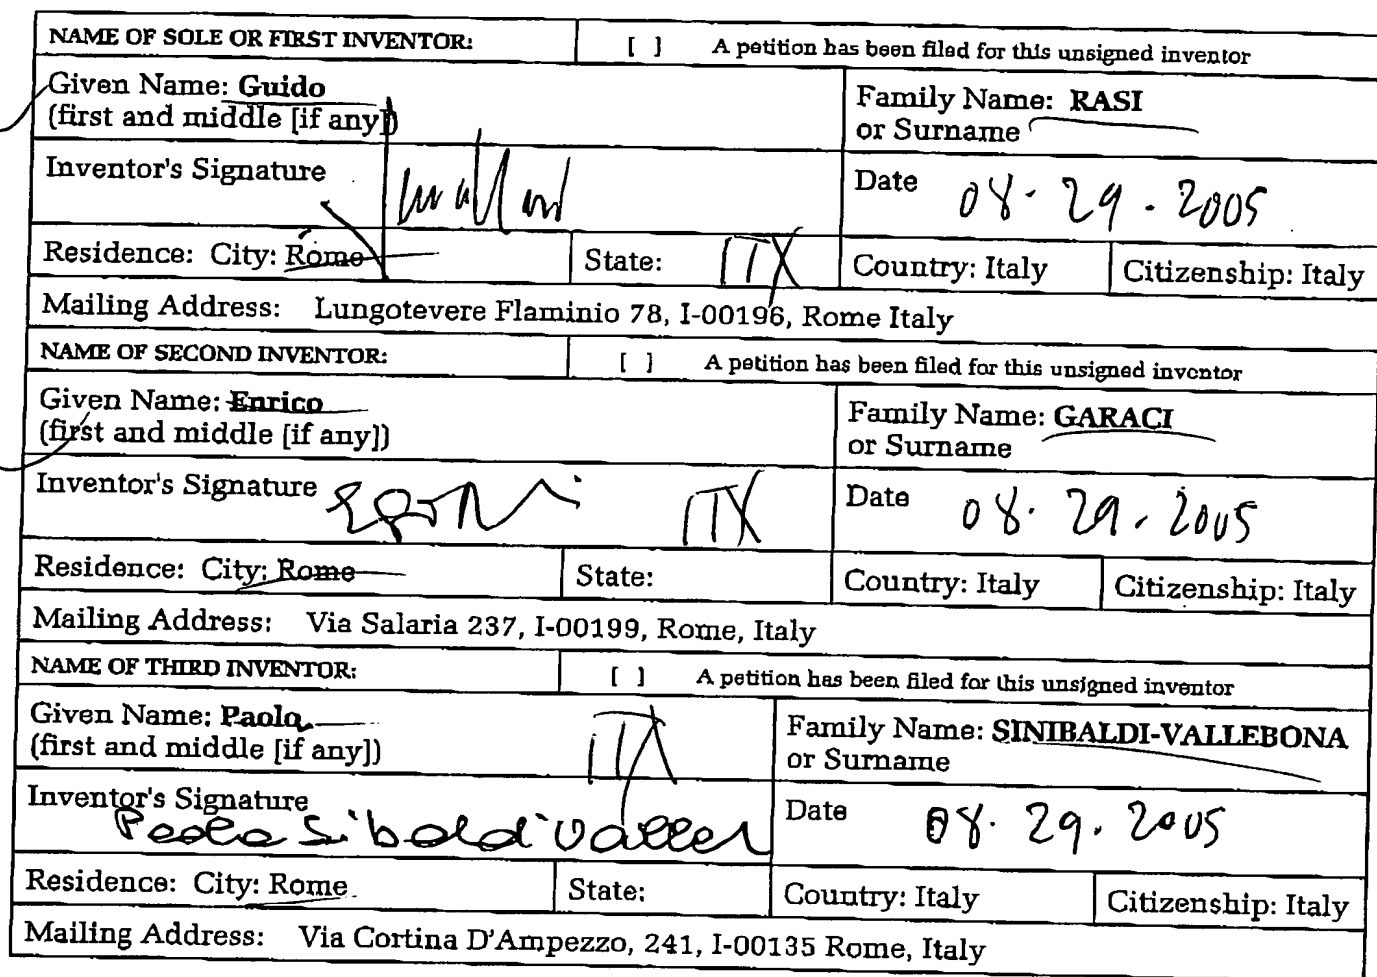 NAME OF SOLE OR FIRST INVENTOR: [ ] A petition has been filed for this unsigned inventor
Given Name: Guido Family Name: RASI
(first and middle [if any]) or Surname
Inventor's Signature Date 08-29-2005
Residence: City: Rome State: ITX Country: Italy Citizenship: Italy
Mailing Address: Lungotevere Flaminio 78, I-00196, Rome Italy
NAME OF SECOND INVENTOR: [ ] A petition has been filed for this unsigned inventor
Given Name: Enrico Family Name: GARACI
(first and middle [if any]) or Surname
Inventor's Signature ITX Date 08.29.2005
Residence: City: Rome State: Country: Italy Citizenship: Italy
Mailing Address: Via Salaria 237, I-00199, Rome, Italy
NAME OF THIRD INVENTOR: [ ] A petition has been filed for this unsigned inventor
Given Name: Paolo ITX Family Name: SINIBALDI-VALLEBONA
(first and middle [if any]) or Surname
Inventor's Signature Date 08.29.2005
Residence: City: Rome State: Country: Italy Citizenship: Italy
Mailing Address: Via Cortina D'Ampezzo, 241, I-00135 Rome, Italy